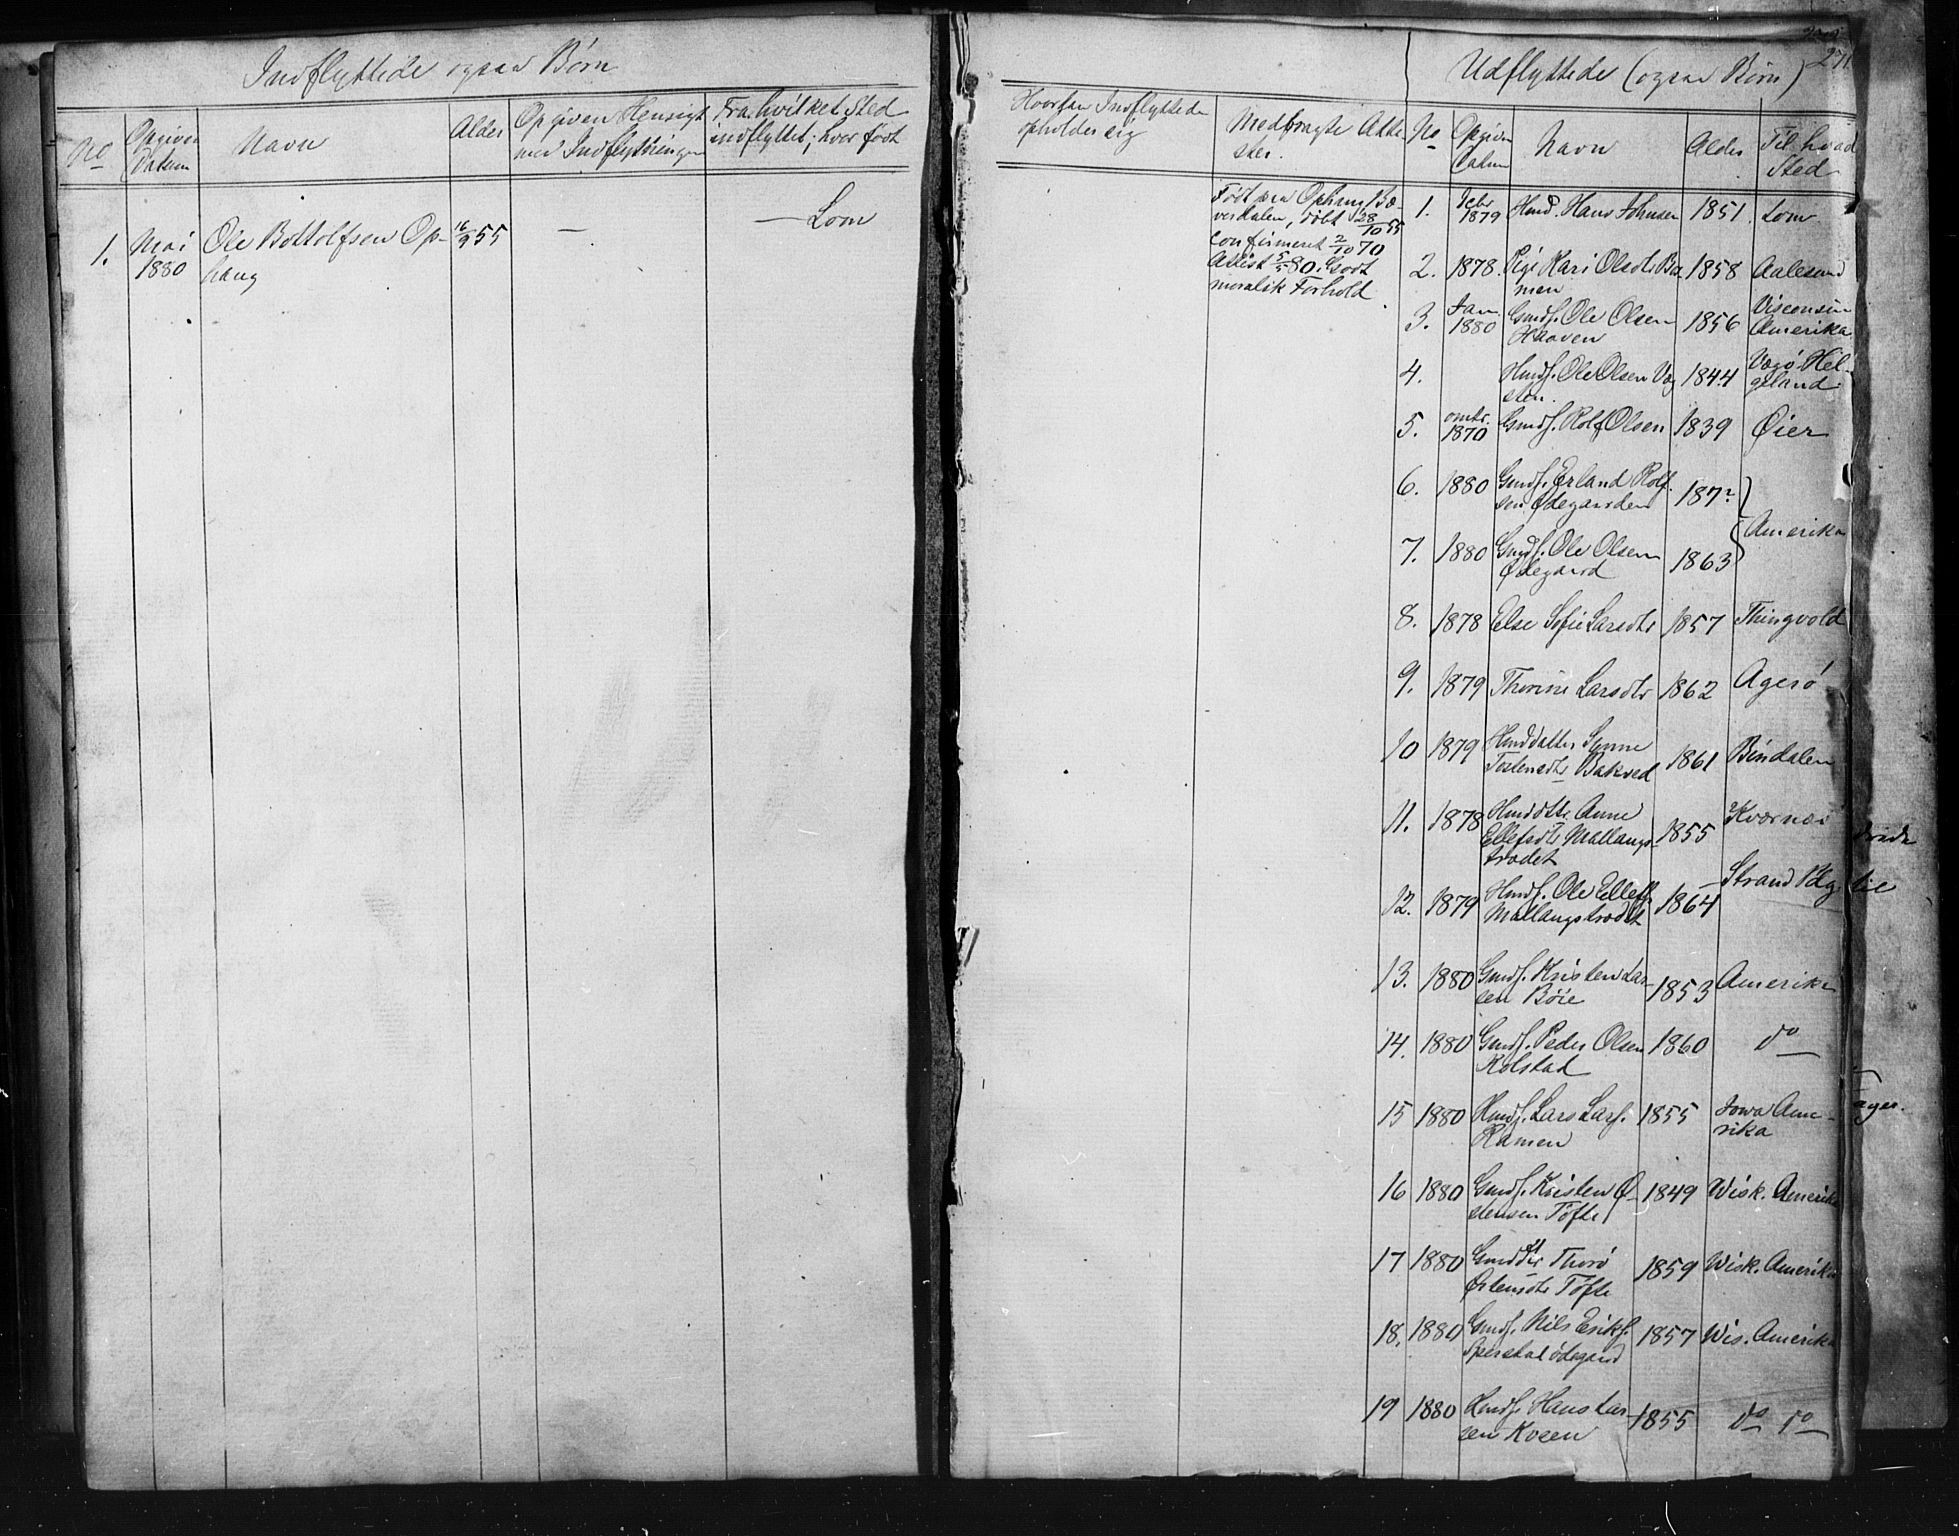 Indflyttede ogsaa Børn
No
Opgiven Datum
Navn
Alder
Opgiven Hensigt
med Indflytningen
Fra hvilket Sted
indflyttet; hvor født
1.
Mai
1880
Ole Bottolfsen Op-
haug
16/9 55
—
— Lom
Hvorhen Indflyttede
opholder sig
Medbragte Atte-
ster.
Født paa Ophaug Bæ-
verdalen, døbt 28/10 55
confirmeret 2/10 70
Attest 5/5 80. Godt
moralsk Forhold
271
Udflyttede (ogsaa Børn)
No
Opgiven
Datum
Navn
Alder
Til hvad
Sted
1. Febr 1879 Hmd. Hans Johnsen 1851. Lom
2. 1878. Pige Kari Olsdtr Ra
men 1858 Aalesund
3. Jan 1880 Gmdf. Ole Olsen
Haaven 1856 Visconsin
Amerika
4. Hmdf. Ole Olsen Væg
sten. 1844 Vægø Hel-
geland
5. omtr. 1870 Gmdf. Rolf Olsen 1839 Øier
6. 1880 Gmdf. Erland Rolf
sen Ødegaarden 187?
7. 1880 Gmdf. Ole Olsen
Ødegaard 1863 } Amerika
8. 1878 Else Sofie Larsdtr 1857 Thingvold
9. 1879 Thorine Larsdtr 1862 Agerø
10 1879 Hmddatter Synne
Tostensdtr Bakved 1861 Bindalen
11. 1878 Hmddttr Anne
Ellefsdtr Mallangs-
trødet 1855 Kværnæs
12. 1879 Hmdf. Ole Ellefs
Mallangstrødet 1864 Strand Pdg
13. 1880 Gmdf. Kristen Lar-
sen Bøie 1853 Amerika
14. 1880 Gmdf. Peder Olsen
Kolstad 1860 do
15 1880 Hmdf. Lars Larf.
Ramen 1855 Iowa Ame-
rika
16 1880 Gmdf. Kristen Ø-
stensen Tofte 1849 Wisk. Amerika
17 1880 Gmddtr Thorø
Østensdtr Tofte 1859 Wisk. Amerika
18. 1880 Gmdf. Nils Erikf.
Sperstal ødegaard 1857 Wis. Amerika
19 1880 Hmdf. Hans Lar
sen Kvsen 1855 do do